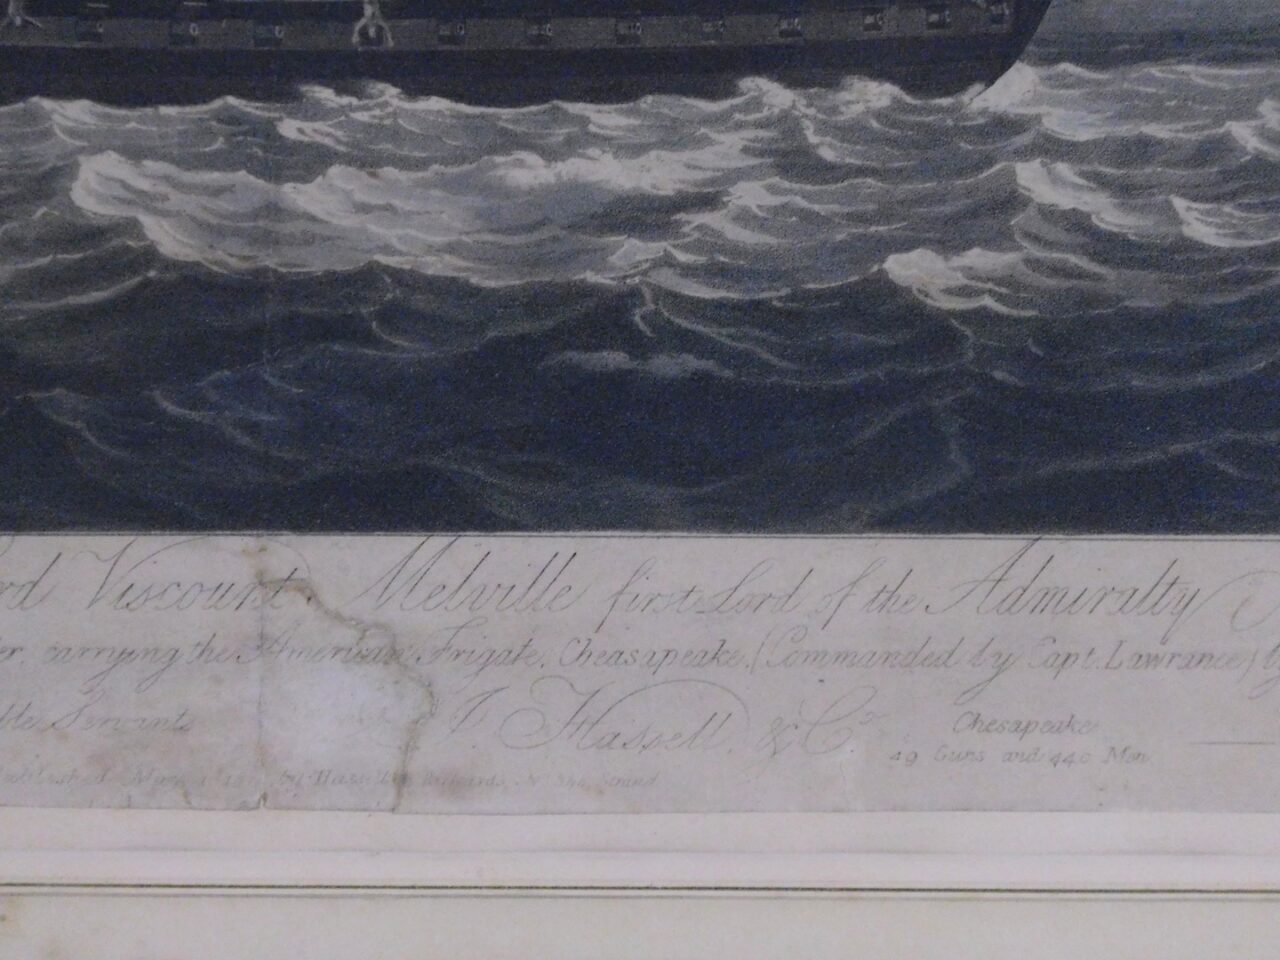 Viscount Melville first Lord of the Admiralty
carrying the American Frigate, Cheasapeake, (Commanded by Capt. Lawrance)
Servants J. Hassell & Co. Chesapeake
49 Guns and 440 Men
Published by Strand